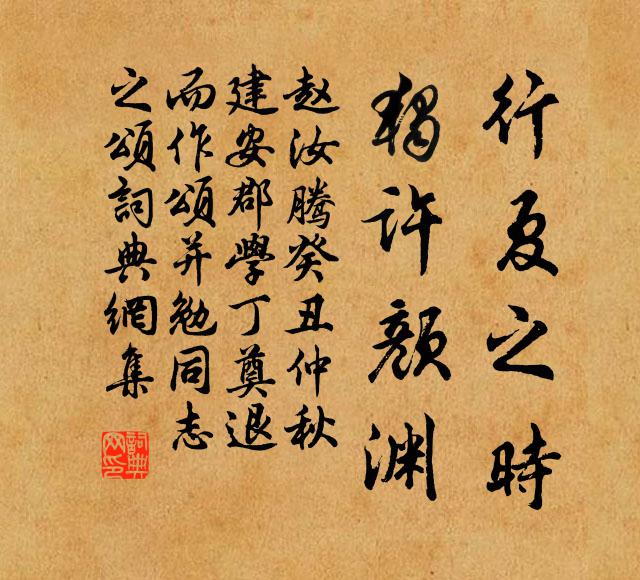 行夏之時
獨许颜渊
赵汝腾癸丑仲秋
建安郡學丁奠退
而作頌并勉同志
之頌詞典網集
詞典网印